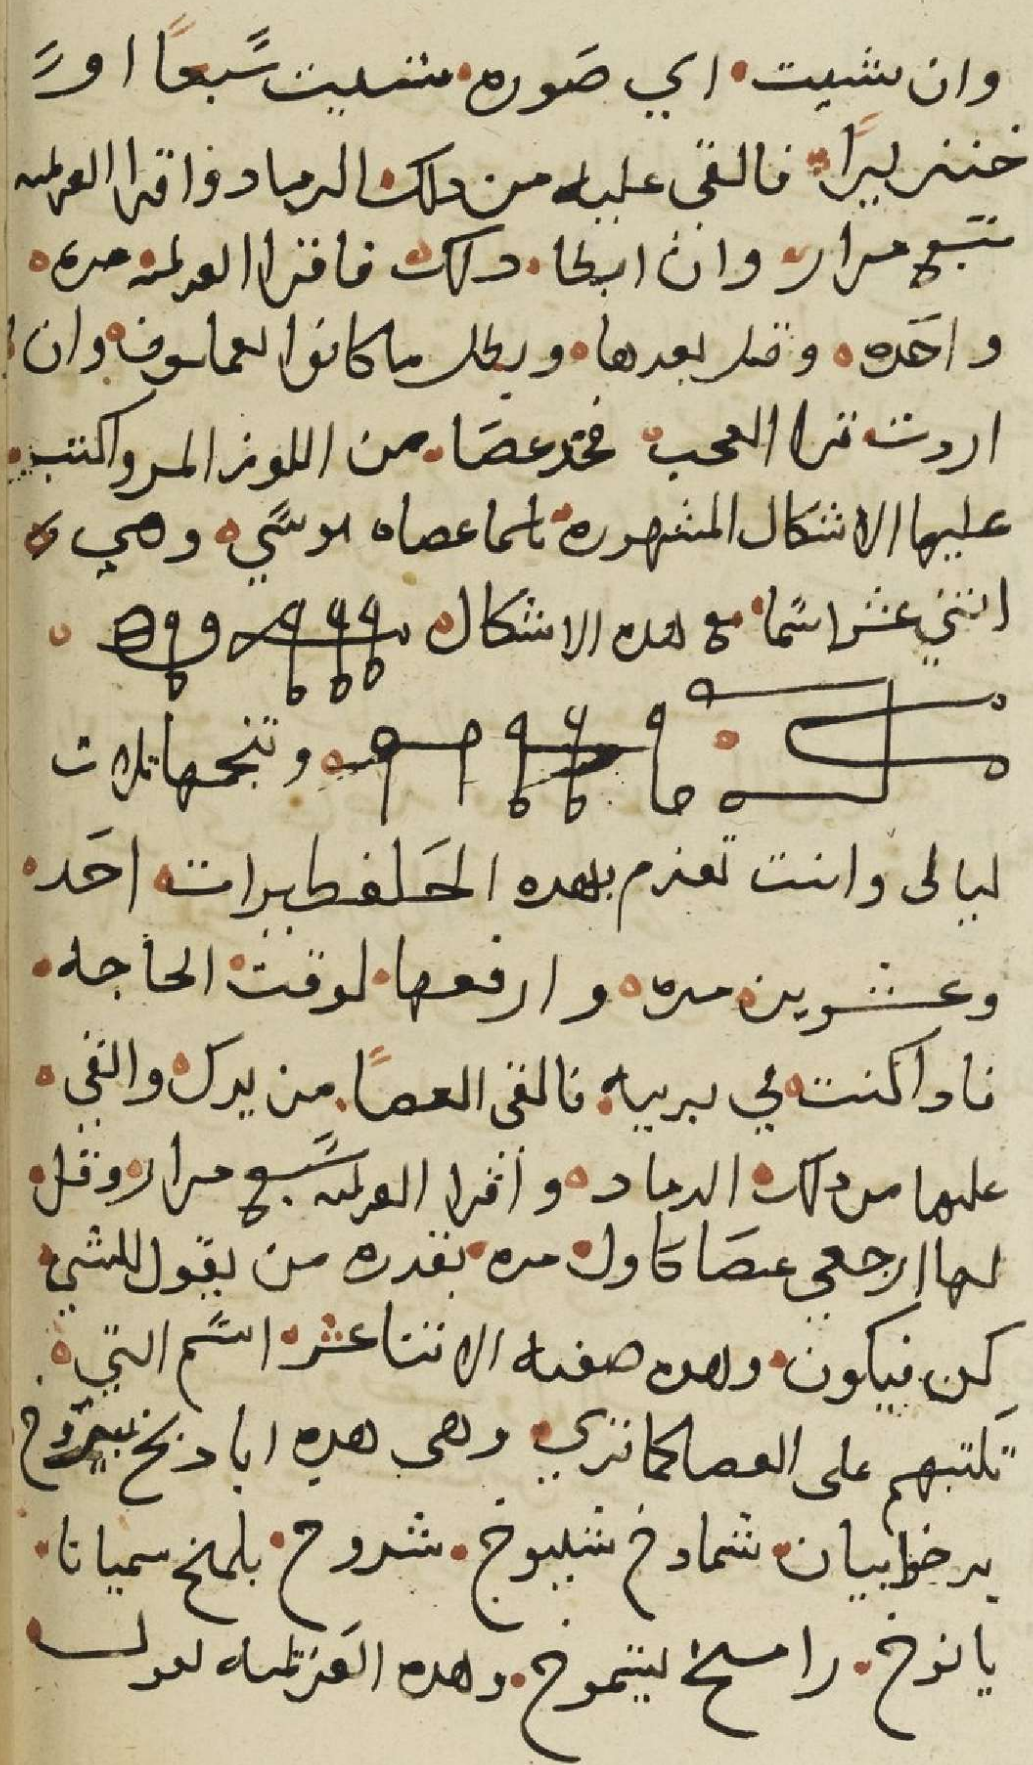 وان شيت اي صوره شييت سبعا او
خنزيرا فالقي عليه من دلك الرماد واقرا العزلمه
سبع مرار وان ابطا دلك فاقرا العزلمه مره
واحده وقل بعدها وبطل ما كانوا يعملون وان
اردت ترا العجب فخد عصا من اللوز المر واكتب
عليها الاشكال المشهوره باسما عصاه موسي وهي
اثني عشر اسما مع هده الاشكال
وتنجمها تلات
ليالي وانت تعزم بهده الحلفطيرات احد
وعشرين مره وارفعها لوقت الحاجه
فادا كنت في بريه فالقي العصا من يدك والقي
عليها من دلك الرماد واقرا العزلمه سبع مرار وقل
لها ارجعي عصا كاول مره بقدره من يقول للشي
كن فيكون وهده صفه الاتنا عشر اسم التي
تكتبهم علي العصا كما تري وهي هده اباديخ بيروخ
برخوابيان شمادخ شيبوخ شروخ بلمخ سميانا
يانوخ رامسخ ليتموخ وهده العزيمه تقول